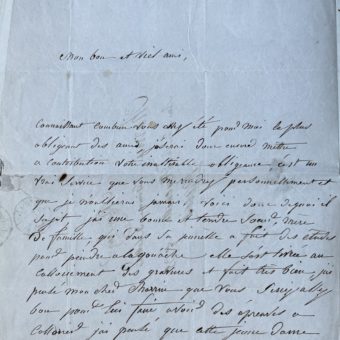 Mon bon et vieil ami,
Connaissant combien vous avez été pour moi le plus
obligeant des amis, j'oserai donc encore mettre
a contribution votre inaltérable obligeance c'est un
vrai service que vous me rendrez personnellement et
que je n'oublierai jamais, voici donc de quoi il
s'agit j'ai une bonne et tendre mère
de famille, qui dans sa a fait des études
pour peindre a la gouache elle s'est livrée au
des gravures et fait très bien, j'ai
pensé mon cher que vous
bon pour lui faire avoir des épreuves a
j'ai pensé que cette jeune dame